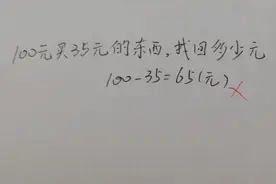 100元买35元的东西,找回多少元
100-35=65(元)